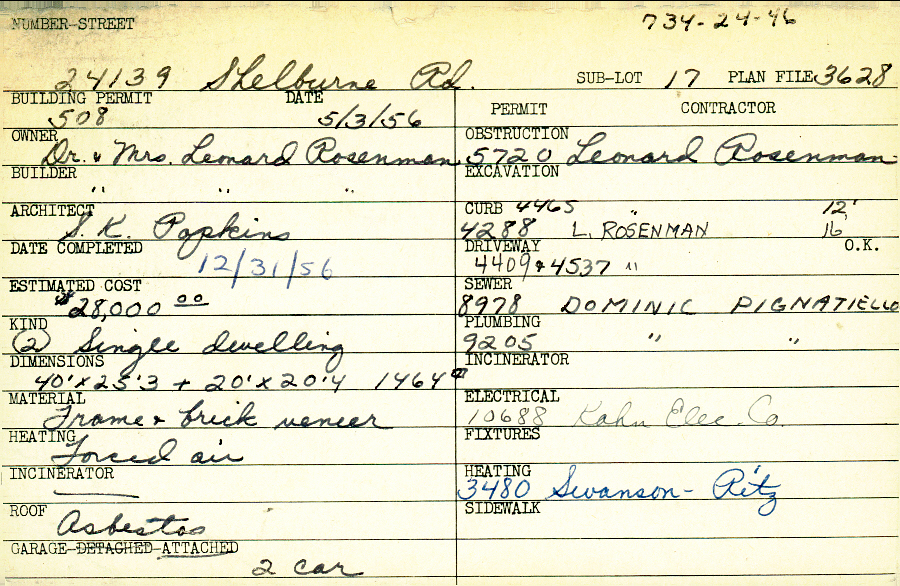 NUMBER-STREET 734-24-46
24139 Shelburne Rd. SUB-LOT 17 PLAN FILE 3628
BUILDING PERMIT DATE
508 5/3/56
OWNER
Dr. & Mrs. Leonard Rosenman
BUILDER
" " "
ARCHITECT
S. K. Popkins
DATE COMPLETED
12/31/56
ESTIMATED COST
$28,000 00
KIND
(2) Single dwelling
DIMENSIONS
40'x25'3 + 20'x20'4 1464
MATERIAL
Frame & brick veneer
HEATING
Forced air
INCINERATOR
ROOF
Asbestos
GARAGE-DETACHED-ATTACHED
2 car
PERMIT CONTRACTOR
OBSTRUCTION
5720 Leonard Rosenman
EXCAVATION
CURB 4465 " 12'
4288 L. ROSENMAN 16'
DRIVEWAY O.K.
4409 & 4537 "
SEWER
8978 DOMINIC PIGNATIELLO
PLUMBING
9205 " "
INCINERATOR
ELECTRICAL
10688 Kahn Elec. Co.
FIXTURES
HEATING
3480 Swanson-Ritz
SIDEWALK